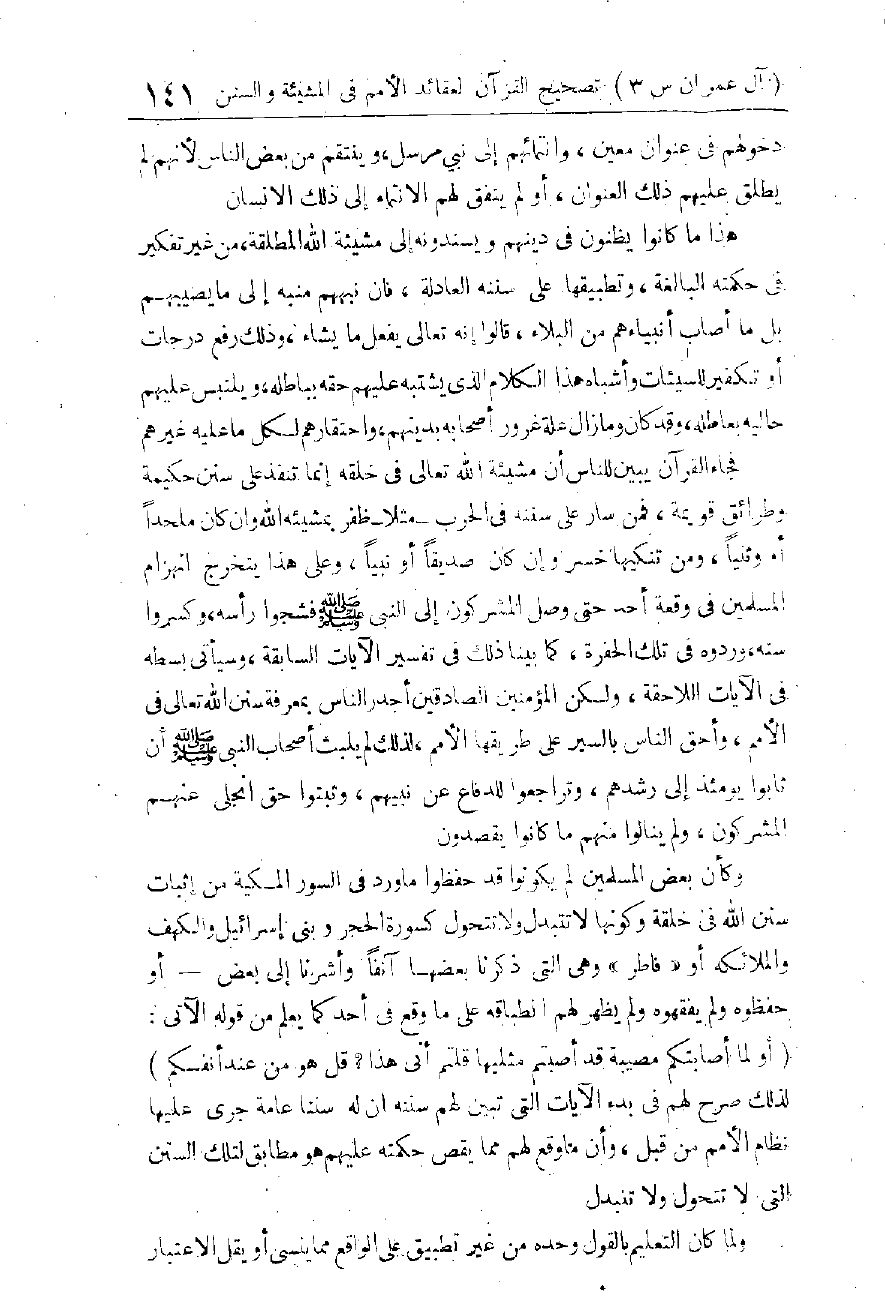 (آل عمران س ٣) تصحيح القرآن لعقائد الأمم فى المشيئة والسنن ١٤١
دخولهم فى عنوان معين ، وانتمائهم إلى نبي مرسل، وينتقم من بعض الناس لأنهم لم
يطلق عليهم ذلك العنوان ، أو لم يتفق لهم الانتماء إلى ذلك الانسان
هذا ما كانوا يظنون فى دينهم ويسندونه إلى مشيئة الله المطلقة، من غير تفكير
فى حكمته البالغة ، وتطبيقها على سننه العادلة ، فان نبههم منبه إلى ما يصيبهم
بل ما أصاب أنبياءهم من البلاء ، قالوا إنه تعالى يفعل ما يشاء ، وذلك رفع درجات
أو تكفير للسيئات وأشباه هذا الكلام الذى يشتبه عليهم حقه بباطله، ويلتبس عليهم
حاليه بعاطله، وقد كان وما زال علة غرور أصحابه بدينهم، واحتقارهم لكل ما عليه غيرهم
فجاء القرآن يبين للناس أن مشيئة الله تعالى فى خلقه إنما تنفذ على سنن حكيمة
وطرائق قويمة ، فمن سار على سننه فى الحرب ــ مثلا ــ ظفر بمشيئه الله وان كان ملحداً
أو وثنياً ، ومن تنكبها خسر وإن كان صديقاً أو نبياً ، وعلى هذا يتخرج انهزام
المسلمين فى وقعة أحد حتى وصل المشركون إلى النبى ﷺ فشجوا رأسه، وكسروا
سنه، وردوه فى تلك الحفرة ، كما بينا ذلك فى تفسير الآيات السابقة ، وسيأتى بسطه
فى الآيات اللاحقة ، ولكن المؤمنين الصادقين أجدر الناس بمعرفة سنن الله تعالى فى
الأمم ، وأحق الناس بالسير على طريقها الأمم ، لذلك لم يلبث أصحاب النبى ﷺ أن
ثابوا يومئذ إلى رشدهم ، وتراجعوا للدفاع عن نبيهم ، وثبتوا حتى انجلى عنهم
المشركون ، ولم ينالوا منهم ما كانوا يقصدون
وكأن بعض المسلمين لم يكونوا قد حفظوا ماورد فى السور المكية من إثبات
سنن الله فى خلقة وكونها لا تتبدل ولا تتحول كسورة الحجر وبنى إسرائيل والكهف
والملائكه أو « فاطر » وهى التى ذكرنا بعضها آنفاً وأشرنا إلى بعض — أو
حفظوه ولم يفقهوه ولم يظهر لهم انطباقه على ما وقع فى أحد كما يعلم من قوله الآتى :
( أو لما أصابتكم مصيبة قد أصبتم مثليها قلتم أنى هذا ؟ قل هو من عند أنفسكم )
لذلك صرح لهم فى بدء الآيات التى تبين لهم سننه ان له سننا عامة جرى عليها
نظام الأمم من قبل ، وأن ماوقع لهم مما يقص حكمته عليهم هو مطابق لتلك السنن
التى لا تتحول ولا تتبدل
ولما كان التعليم بالقول وحده من غير تطبيق على الواقع مما ينسى أو يقل الاعتبار